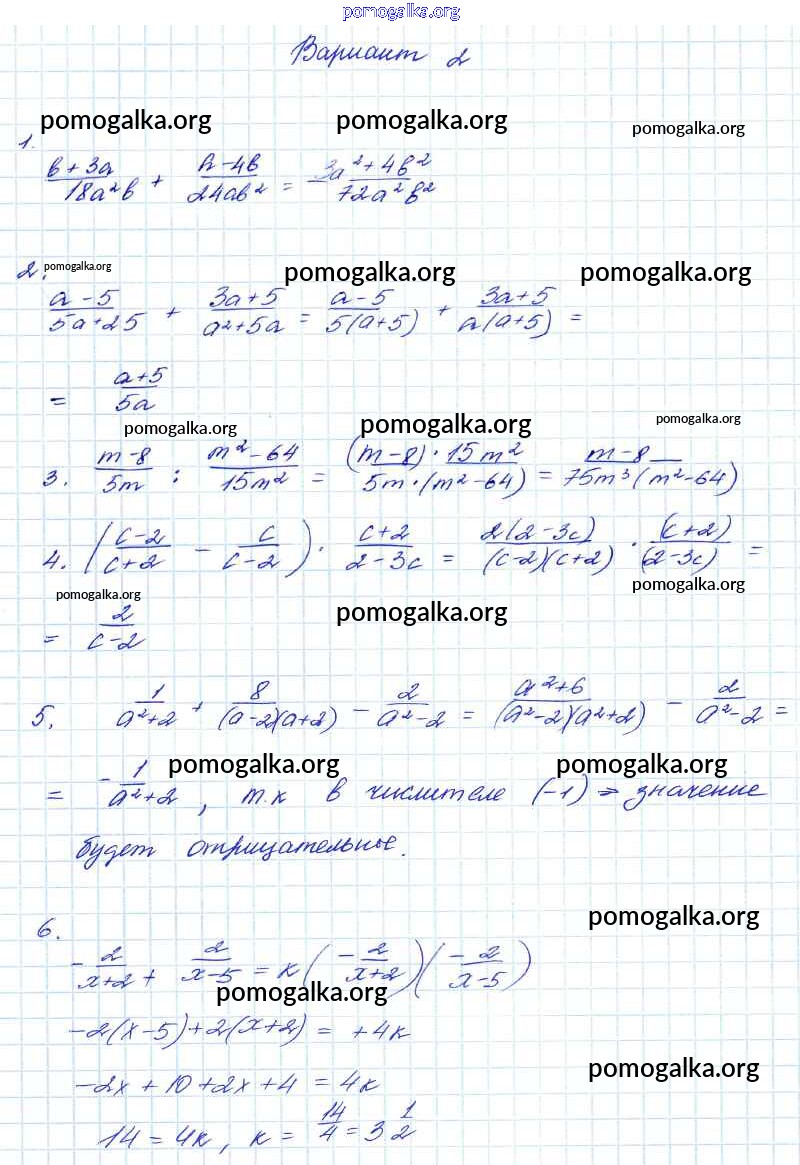 pomogalka.org
Вариант 2
pomogalka.org pomogalka.org pomogalka.org
1.
(b+3a)/(18a²b) + (a-4b)/(24ab²) = (3a²+4b²)/(72a²b²)
2. pomogalka.org pomogalka.org pomogalka.org
(a-5)/(5a+25) + (3a+5)/(a²+5a) = (a-5)/(5(a+5)) + (3a+5)/(a(a+5)) =
= (a+5)/(5a)
pomogalka.org pomogalka.org pomogalka.org
3. (m-8)/(5m) : (m²-64)/(15m²) = ((m-8)·15m²)/(5m·(m²-64)) = (m-8)/(75m³(m²-64))
4. ((c-2)/(c+2) - c/(c-2)) · (c+2)/(2-3c) = (2(2-3c))/((c-2)(c+2)) · (c+2)/(2-3c) =
pomogalka.org pomogalka.org pomogalka.org
= 2/(c-2)
5. 1/(a²+2) + 8/((a-2)(a+2)) - 2/(a²-2) = (a²+6)/((a²-2)(a²+2)) - 2/(a²-2) =
pomogalka.org pomogalka.org
= -1/(a²+2), т.к в числителе (-1) ⇒ значение
будет отрицательные.
pomogalka.org
6.
-2/(x+2) + 2/(x-5) = к(-2/(x+2))(-2/(x-5))
pomogalka.org
-2(x-5)+2(x+2) = +4к
pomogalka.org
-2x+10+2x+4 = 4к
14 = 4к, к = 14/4 = 3 1/2